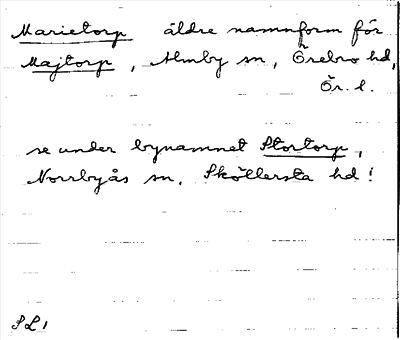 Marietorp äldre namnform för
Majtorp, Almby sn, Örebro hd,
Ör. l.
se under bynamnet Stortorp,
Norrbyås sn, Sköllersta hd!
SL1